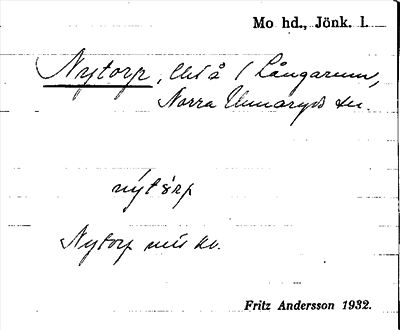 Mo hd., Jönk. l.
Nytorp, Utjå / Långarum,
Norra Unnaryds sn.
nýtórp
Nytorp mis kv.
Fritz Andersson 1932.